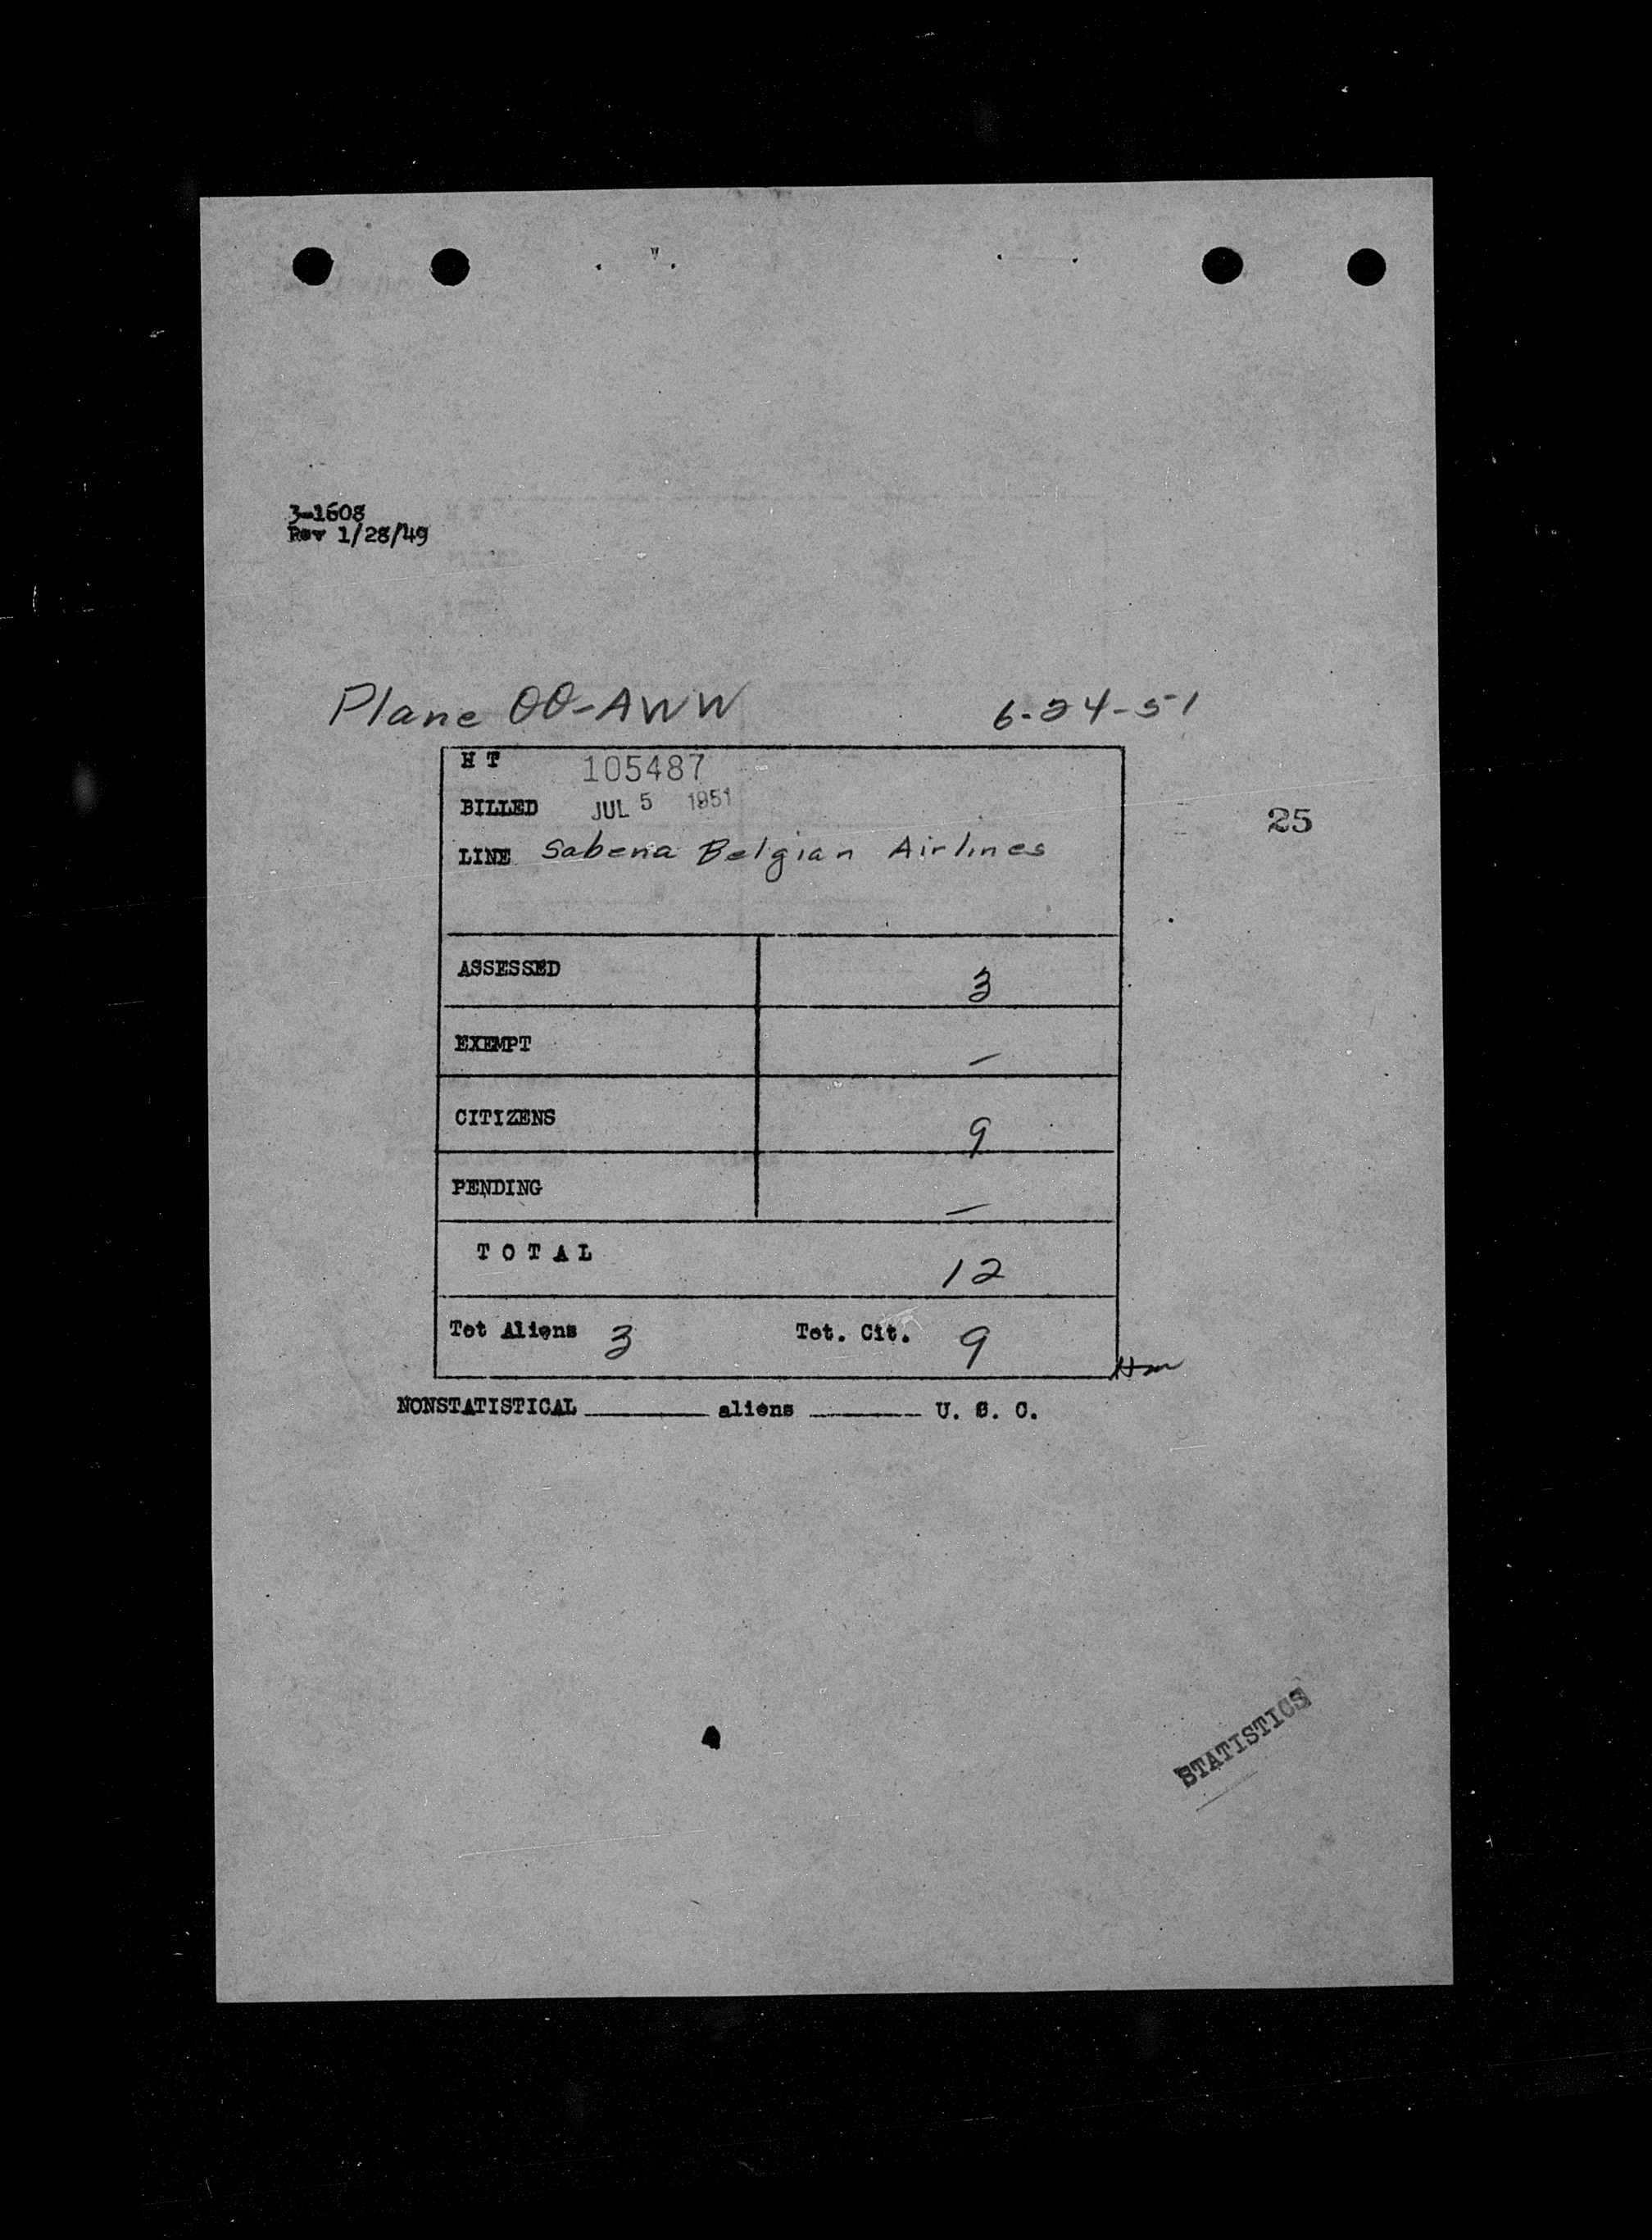 3-1608
Rev 1/28/49
Plane OO-AWW 6-24-51
H T 105487
BILLED JUL 5 1951
25
LINE Sabena Belgian Airlines
ASSESSED 3
EXEMPT —
CITIZENS 9
PENDING —
T O T A L 12
Tot Aliens 3 Tot. Cit. 9
NONSTATISTICAL ________ aliens ________ U. S. C.
STATISTICS